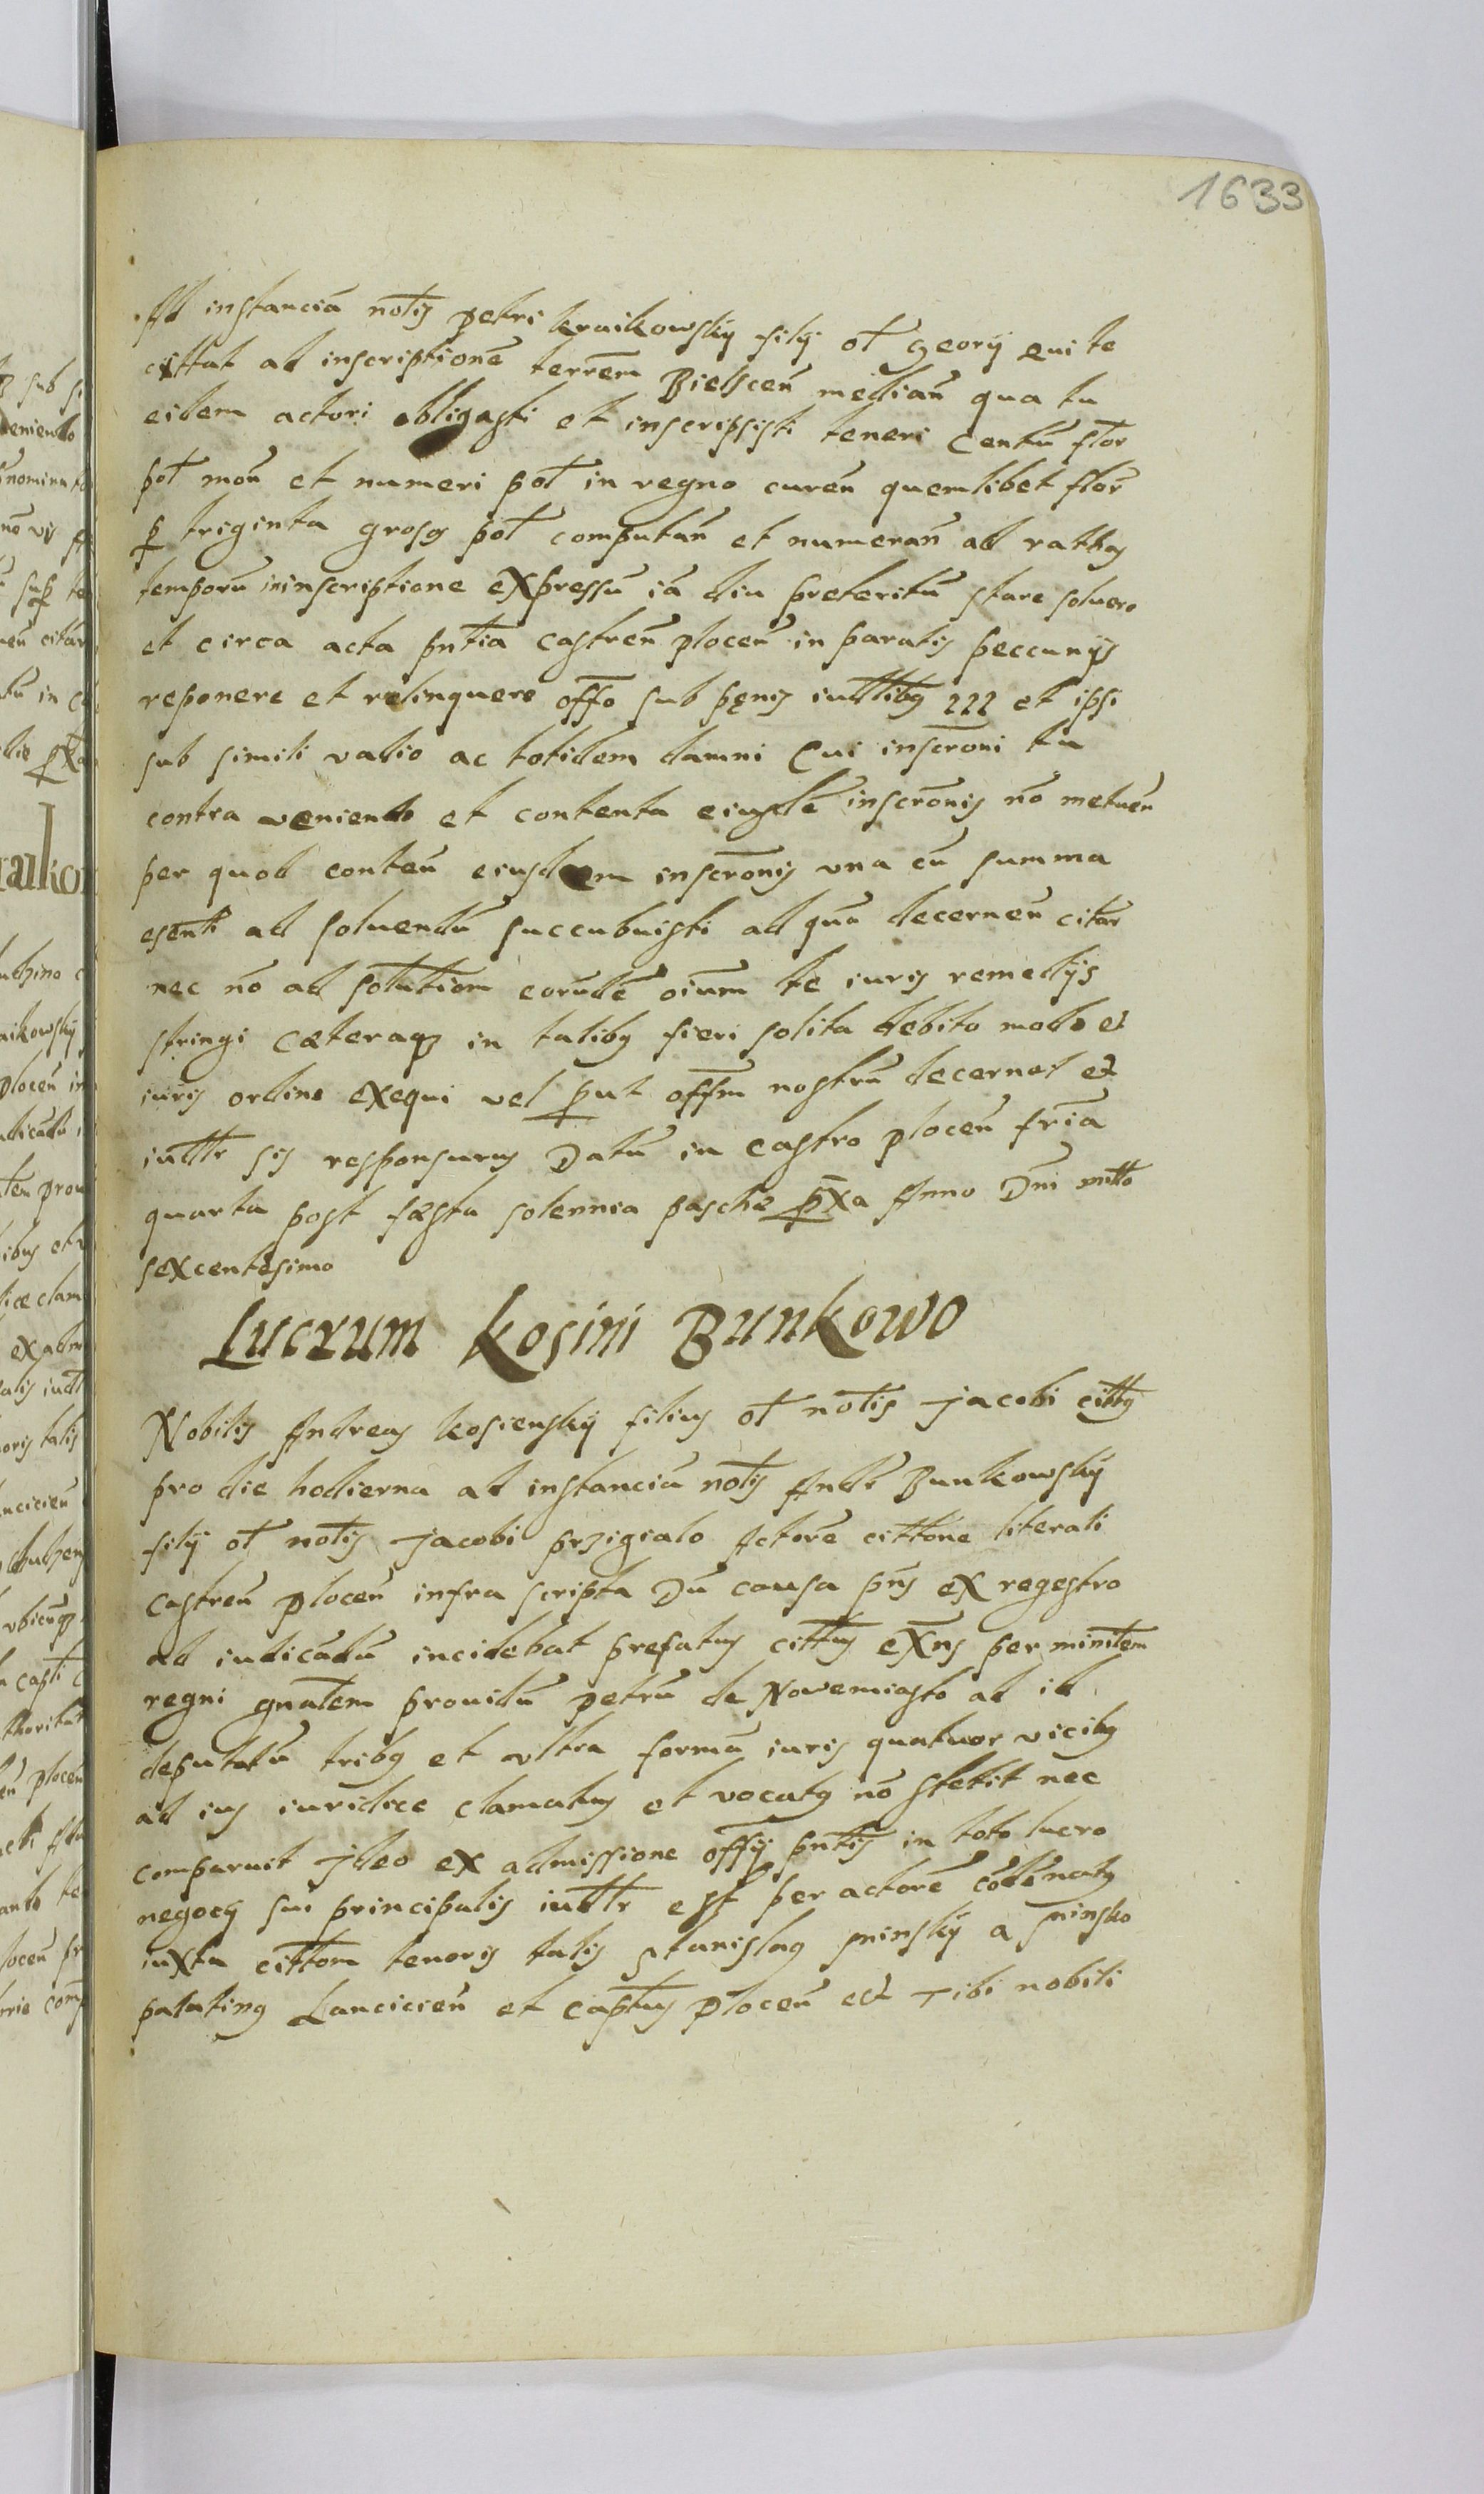 1633
Ad instanciā notlis petri kraikowskÿ filÿ ol georÿ qui te
cittat ad inscriptionē terrēm Bielscen̄ median̄ qua tu
eidem actori obligasti et inscripsisti teneri Centū flor
pol mon̄ et numeri pol in regno curen̄ quemlibet flor
p triginta grosos pol computan̄ et numeran̄ ad rathas
temporū ininscriptione eXpressū iā diu preteritū stare soluere
et circa acta pntia castren̄ plocen̄ in paratis peccunÿs
reponere et relinquere offo sub pęnis iudlibg 222 et ipsi
sub simili vadio ac totidem damni Cui inscroni tu
contra veniendo et contenta eiusdē inscronis nō metuen̄
per quod conten̄ eiusdem inscronis vna cū summa
esenti ad soluendū succubuisti ad quā decernen̄ citar
nec nō ad solutiom eorūdē oium te iuris remedÿs
stringi cæteraqz in talibg fieri solita debito modo et
iuris ordine eXequi vel put offm nostrū decernet et
iudlr sis responsurus Datū in castro plocen̄ fria
quarta post fæsta solennia pasche pXa Anno Dni millo
seXcentesimo
Lucrum kosini Bunkowo
Nobilis Andreas kosienskÿ filius ol notlis Jacobi cittg
pro die hodierna ad instanciā notlis Andr Bunkowskÿ
filÿ ol notlis Jacobi przigialo Actore cittōne literali
castren̄ plocen̄ infra scripta Dū causa pns eX regestro
ad iudicādū incidebat prefatus cittus eXns per minrlem
regni gnalem prouidū petrū de Nowemiasto ad id
deputatū tribg et vltra formā iuris quatuor vicibg
ad ius iuridice clamatus et vocatg nō stetit nec
comparuit Jdeo eX admissione offÿ pntis in toto lucro
negocÿ sui principalis iudlr est per actorē cōdēnatg
iuXta cittom tenoris talis Stanislag minskÿ a minsko
palating Lanciciēn et captus plocen̄ ect Tibi nobili